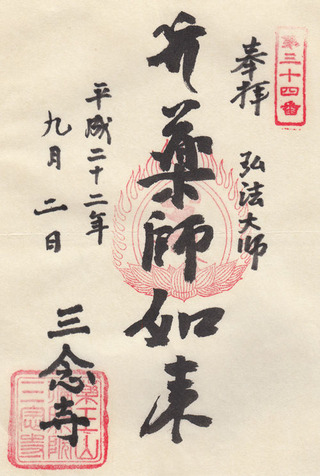 第三十四番
奉拝
弘法大師
薬師如来
平成二十二年
九月二日
三念寺